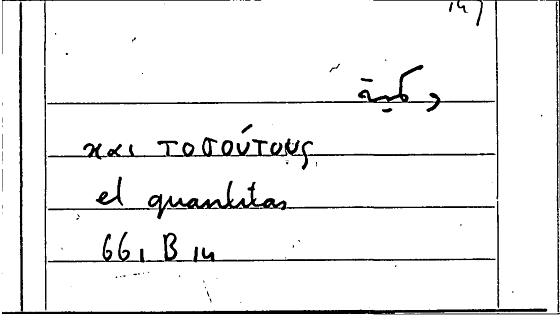 147
وكمية
και τοσούτους
et quantitas
66, B 14